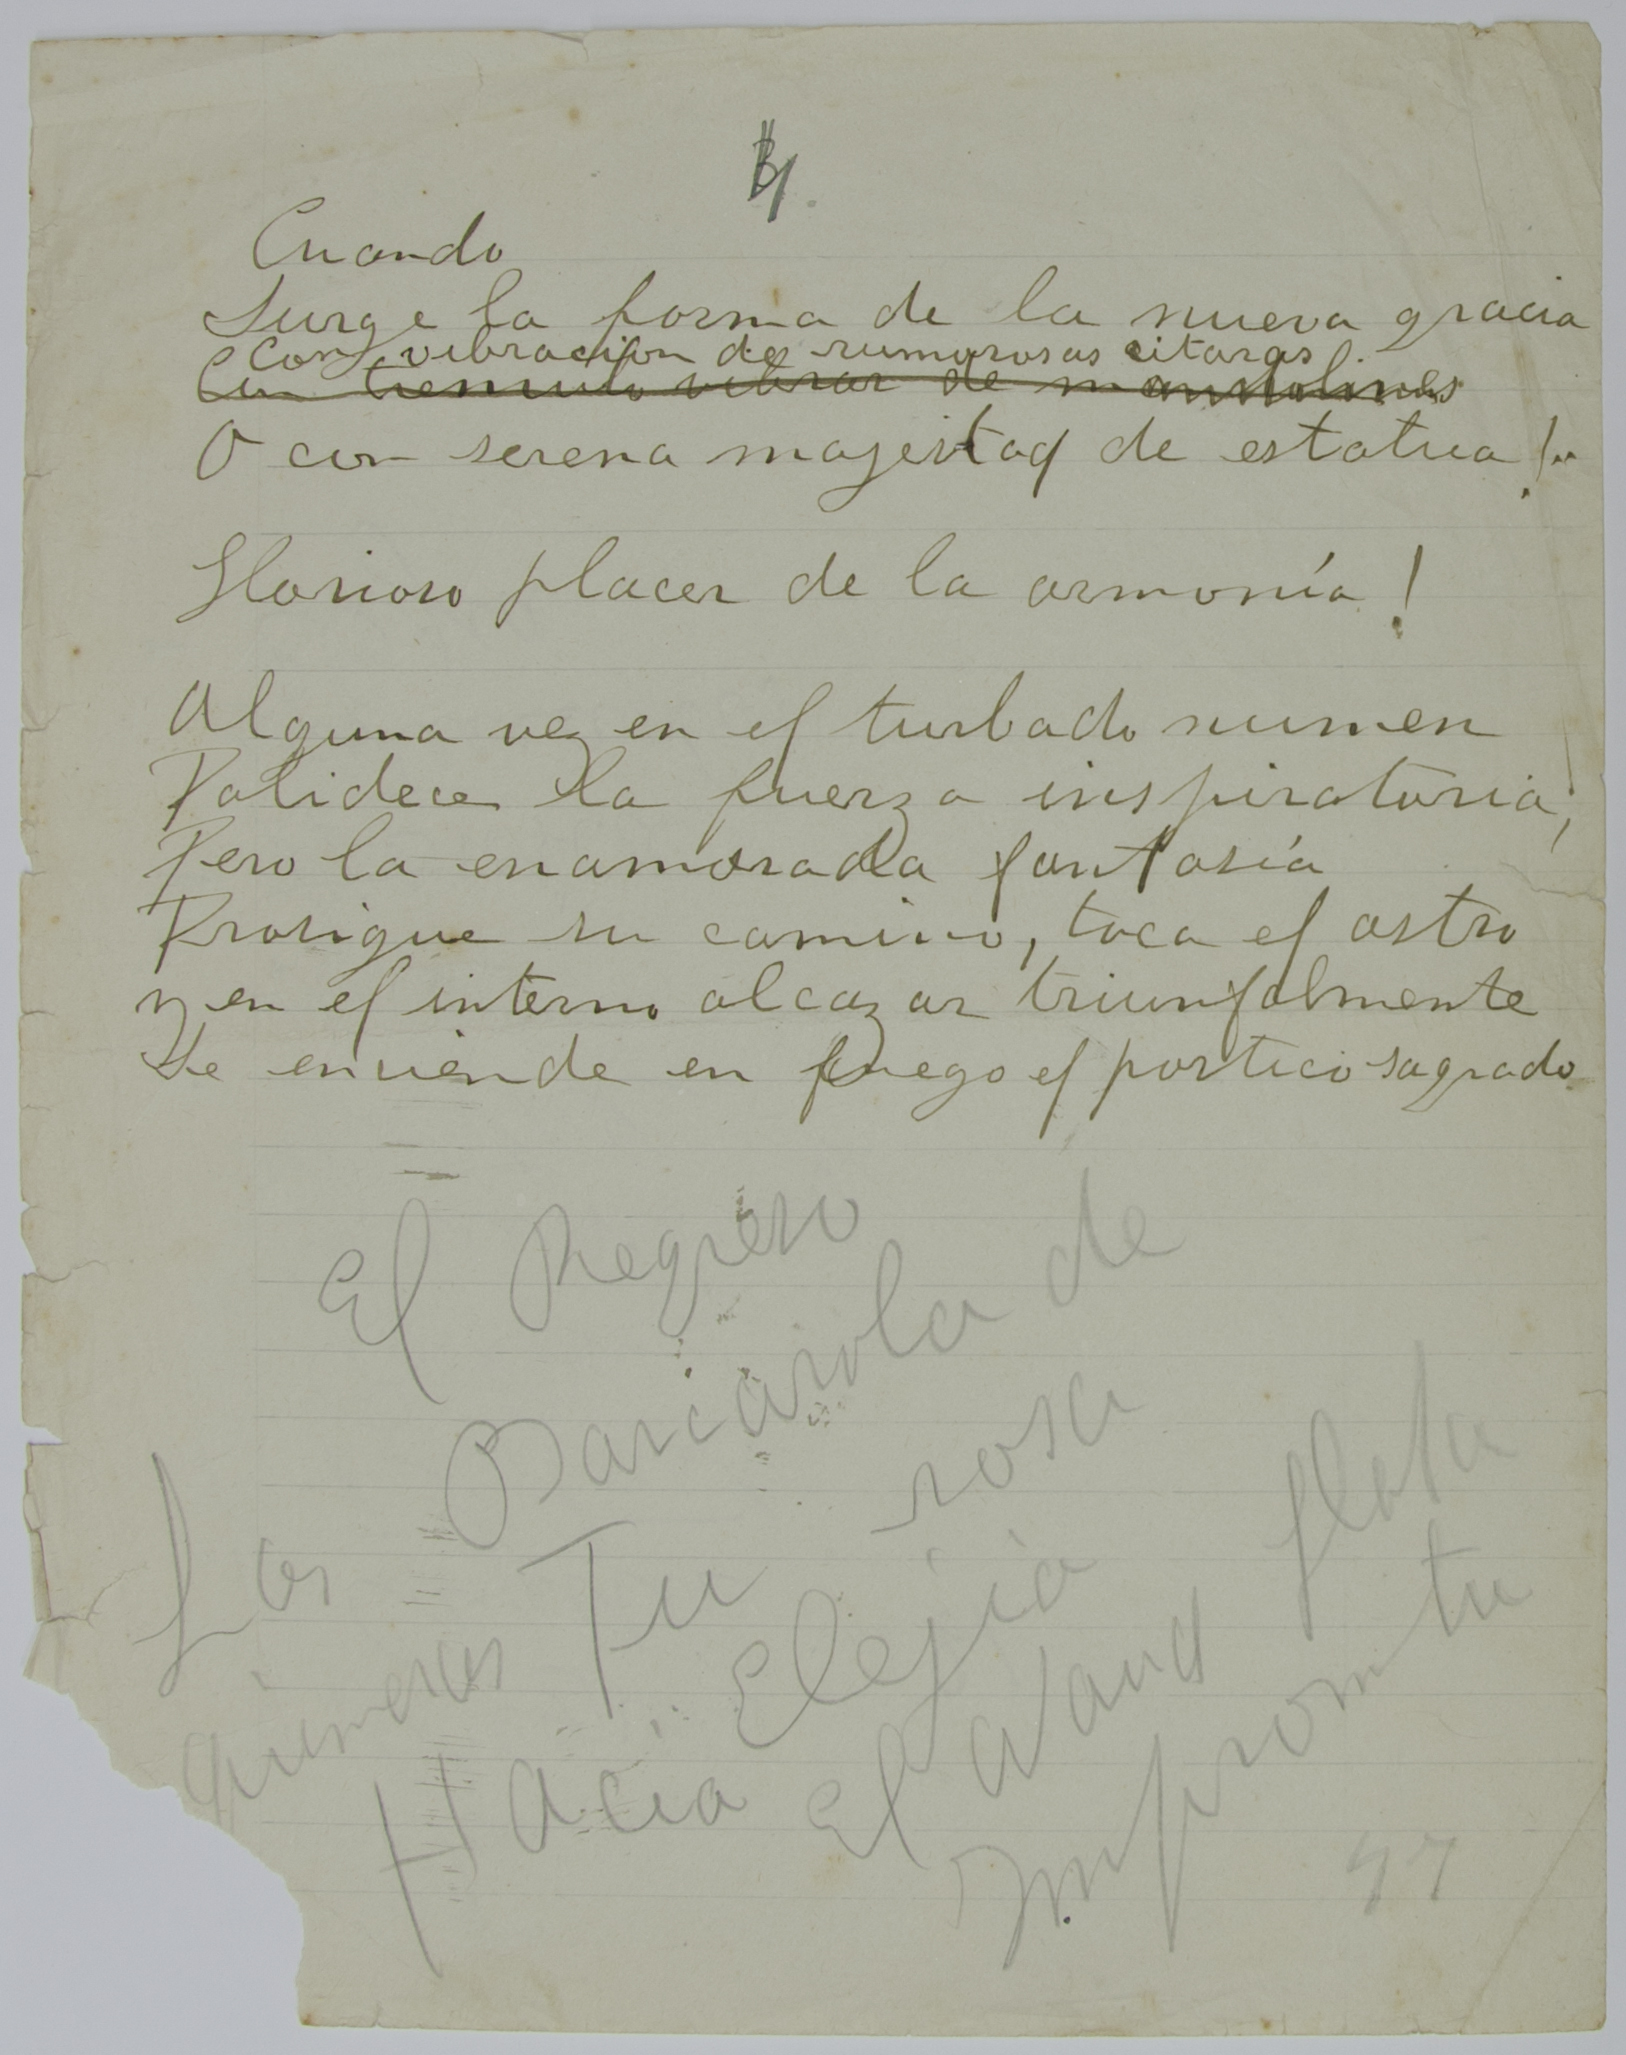 4.
Cuando
Surge la forma de la nueva gracia
Con vibracion de rumorosas citaras!.
Con tremulo vibrar de mandolines
O con serena majestad de estatua!..
Glorioso placer de la armonía!
Alguna vez en el turbado numen
Palidece la fuerza inspiratoria;
Pero la enamorada fantasía
Prosigue su camino, toca el astro
y en el interno alcazar triunfalmente
Se enciende en fuego el portico sagrado
El Regreso
Barcarola de
Las
quimeras
Tu rosa
Hacia
Elejia
El
flota
Impromtu
47